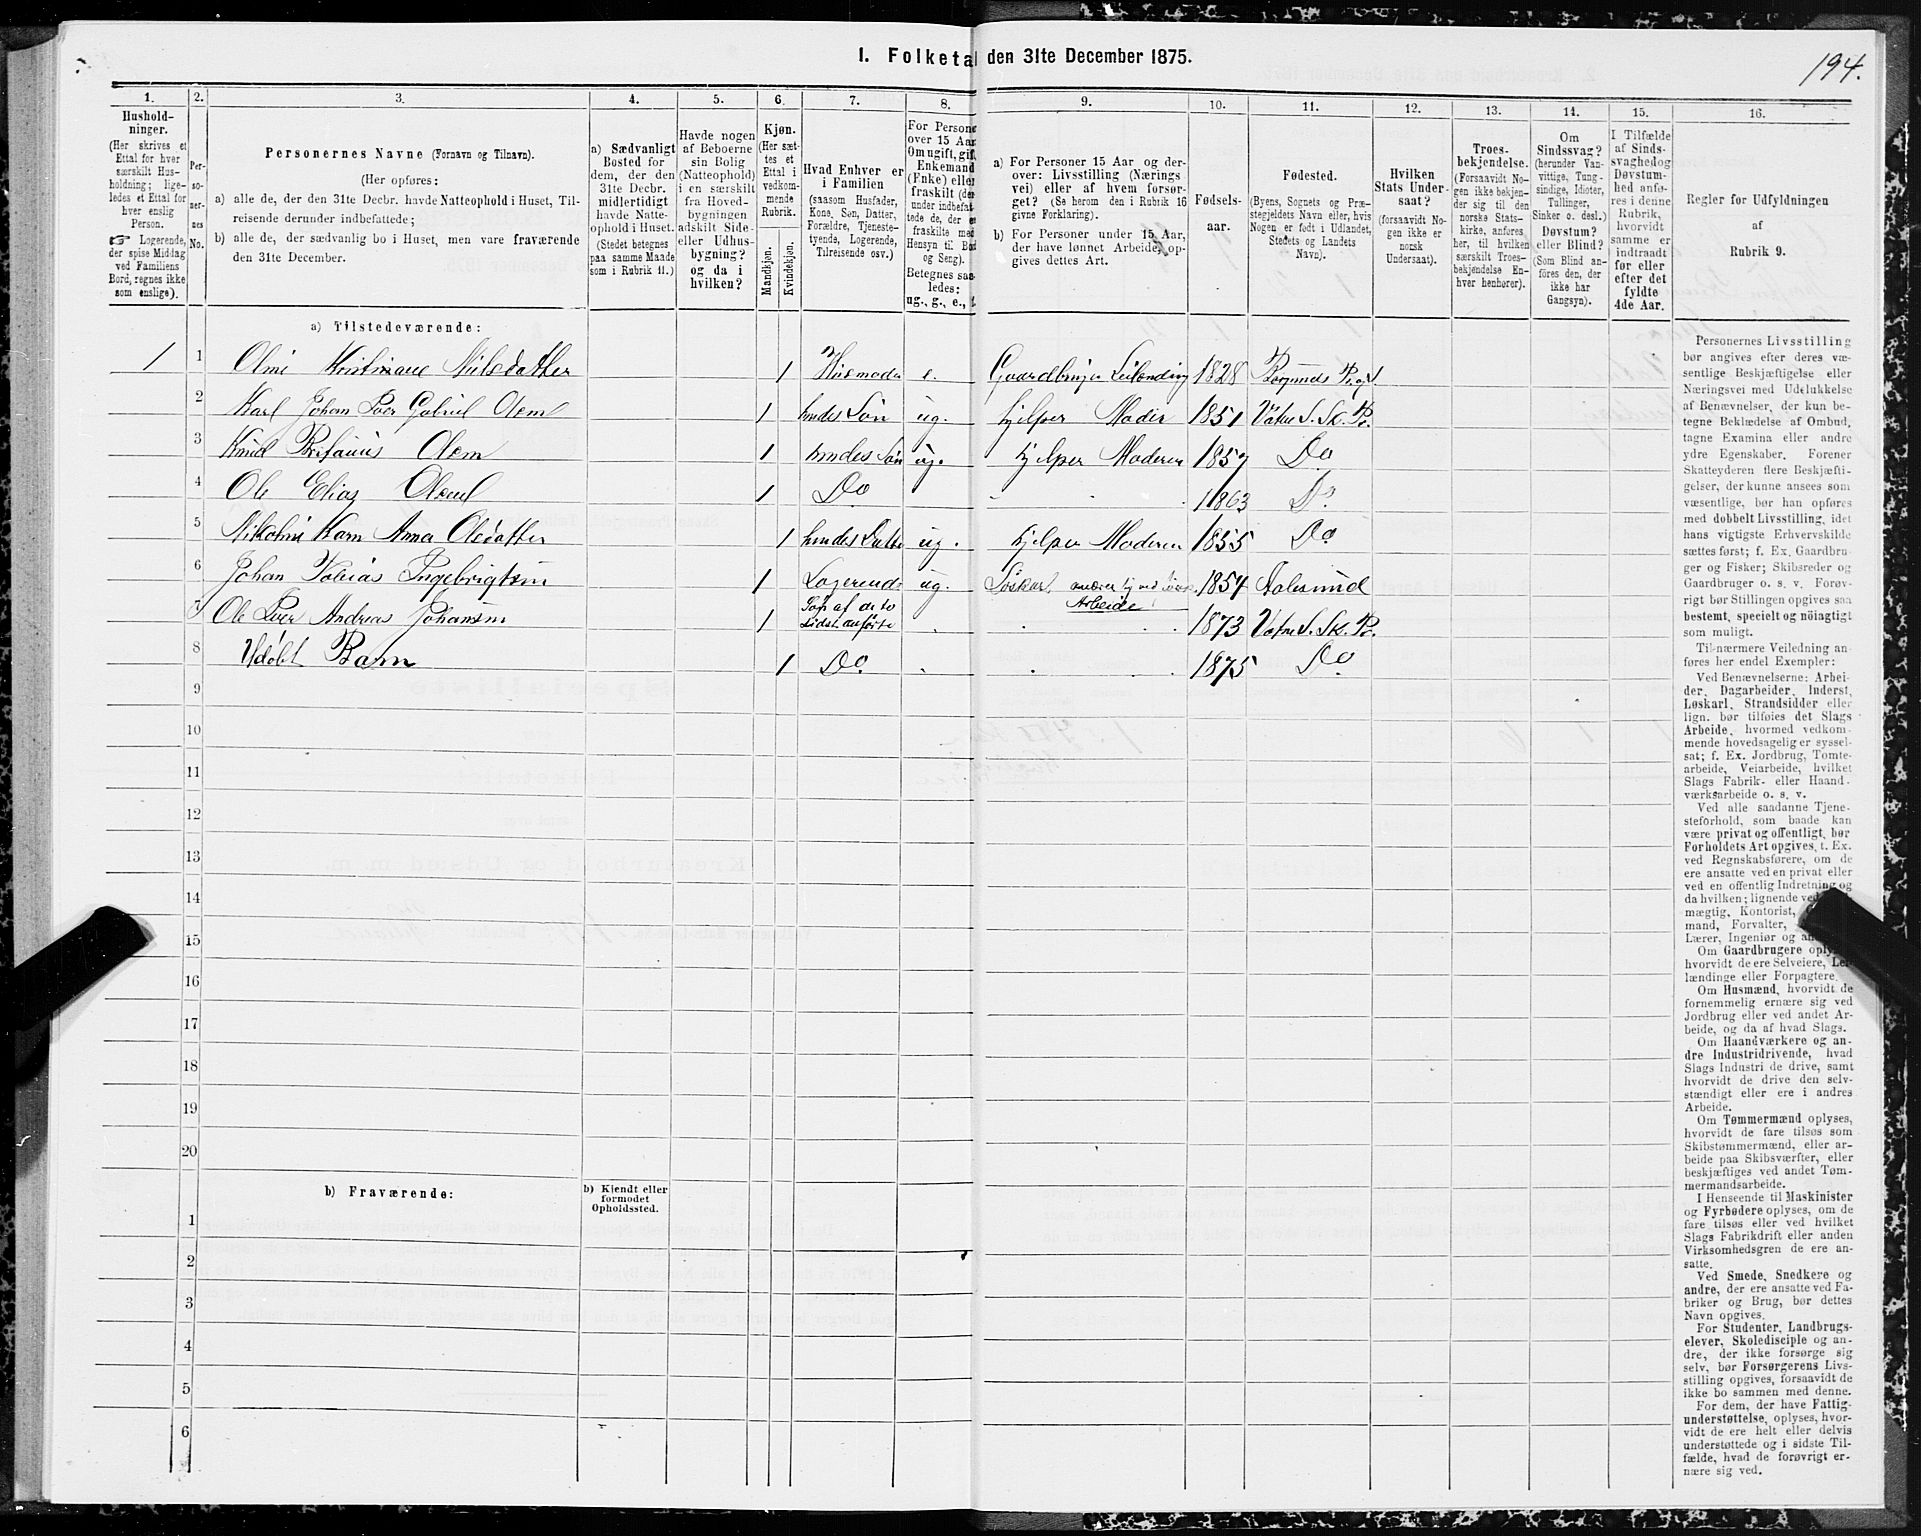 I. Folketal den 31te December 1875.
194.
1.
2.
3.
4.
5.
6.
7.
8.
9.
10.
11.
12.
13.
14.
15.
16.
Hushold-
ninger.
(Her skrives et
Ettal for hver
særskilt Hus-
holdning; lige-
ledes et Ettal for
hver enslig
Person.
☞ Logerende,
der spise Middag
ved Familiens
Bord, regnes ikke
som enslige).
Per-
so-
ner-
nes
No.
Personernes Navne (Fornavn og Tilnavn).
(Her opføres:
a) alle de, der den 31te Decbr. havde Natteophold i Huset, Til-
reisende derunder indbefattede;
b) alle de, der sædvanlig bo i Huset, men vare fraværende
den 31te December.
a) Sædvanligt
Bosted for
dem, der den
31te Decbr.
midlertidigt
havde Natte-
ophold i Huset.
(Stedet betegnes
paa samme Maade
som i Rubrik 11.)
Havde nogen
af Beboerne
sin Bolig
(Natteophold)
i en særskilt
fra Hoved-
bygningen
adskilt Side-
eller Udhus-
bygning?
og da i
hvilken?
Kjøn.
(Her sæt-
tes et
Ettal i
vedkom-
mende
Rubrik.
Mandkjøn.
Kvindekjøn.
Hvad Enhver er
i Familien
(saasom Husfader,
Kone, Søn, Datter,
Forældre, Tjeneste-
tyende, Logerende,
Tilreisende osv.)
For Persone
over 15 Aar
Om ugift, gif
Enkemand
(Enke) elle
fraskilt (de
under indbefat
tede de, der e
fraskilte med
Hensyn til Bo
og Seng).
Betegnes saa-
ledes:
ug., g., e., f.
a) For Personer 15 Aar og der-
over: Livsstilling (Nærings
vei) eller af hvem forsør-
get? (Se herom den i Rubrik 16
givne Forklaring).
b) For Personer under 15 Aar,
der have lønnet Arbeide, op-
gives dettes Art.
Fødsels-
aar.
Fødested.
(Byens, Sognets og Præ-
stegjeldets Navn eller, hvis
Nogen er født i Udlandet,
Stedets og Landets
Navn).
Hvilken
Stats Under-
saat?
(forsaavidt No-
gen ikke er
norsk
Undersaat).
Troes-
bekjendelse.
(Forsaavidt No-
gen ikke bekjen-
der sig til den
norske Stats-
kirke, anføres
her, til hvilken
særskilt Troes-
bekjendelse En-
hver henhører).
Om
Sindssvag?
(herunder Van-
vittige, Tung-
sindige, Idioter,
Tullinger,
Sinker o. desl.)
Døvstum?
eller Blind?
(Som Blind an-
føres den, der
ikke har
Gangsyn).
I Tilfælde
af Sinds-
svaghed og
Døvstum-
hed anfø-
res i denne
Rubrik,
hvorvidt
samme er
indtraadt
før eller
efter det
fyldte
4de Aar.
Regler for Udfyldningen
af
Rubrik 9.
a) Tilstedeværende:
1 1 Olini Kristiane Nilsdatter 1 Husmoder e. Gaardbruger Leilending 1828 Borgunds Prgj
2 Karl Johan Peer Gabriel Olsen 1 hendes Søn ug. hjelper Moder 1851 Vatne S. Sk. Pr.
3 Knud Olsen 1 hendes Søn ug. hjelper Moderen 1857 Do
4 Ole Elias Olsen 1 Do 1863 Do
5 Nikoline Karn Anna Olesdatter 1 hendes Datter ug. hjelper Moderen 1855 Do
6 Johan Tobias Ingebrigtsen 1 Logerende ug. Løskarl, nærer sig ved Arbeide 1854 Aalesund
7 Ole Peer Andreas Johansen 1 Søn af dito sidst anførte 1873 Vatne S. Sk. Pr.
8 Udøbt Barn 1 Do 1875 Do
9
10
11
12
13
14
15
16
17
18
19
20
b) Fraværende:
b) Kjendt eller
formodet
Opholdssted.
1
2
3
4
5
6
Personernes Livsstilling
bør angives efter deres væ-
sentlige Beskjæftigelse eller
Næringsvei med Udelukkelse
af Benævnelser, der kun be-
tegne Beklædelse af Ombud,
tagne Examina eller andre
ydre Egenskaber. Forener
Skatteyderen flere Beskjæfti-
gelser, der kunne ansees som
væsentlige, bør han opføres
med dobbelt Livsstilling, idet
hans vigtigste Erhvervskilde
sættes først; f. Ex. Gaardbru-
ger og Fisker; Skibsreder og
Gaardbruger o. s. v. Forøv-
rigt bør Stillingen opgives saa
bestemt, specielt og nøiagtigt
som muligt.
Til nærmere Veiledning an-
føres her endel Exempler:
Ved Benævnelserne: Arbei-
der, Dagarbeider, Inderst,
Løskarl, Strandsidder eller
lign. bør tilføies det Slags
Arbeide, hvormed vedkom-
mende hovedsagelig er syssel-
sat; f. Ex. Jordbrug, Tomte-
arbeide, Veiarbeide, hvilket
Slags Fabrik- eller Haand-
værksarbeide o. s. v.
Ved alle saadanne Tjene-
steforhold, som baade kan
være privat og offentligt, bør
Forholdets Art opgives, t. Ex.
ved Regnskabsførere, om de
ere ansatte ved en privat eller
ved en offentlig Indretning og
da hvilken; lignende ved
mægtig, Kontorist,
mand, Forvalter,
Lærer, Ingeniør og
Om Gaardbrugere oply
hvorvidt de ere Selveiere, Lei-
lændinge eller Forpagtere.
Om Husmænd, hvorvidt de
fornemmelig ernære sig ved
Jordbrug eller ved andet Ar-
beide, og da af hvad Slags.
Om Haandværkere og an-
dre Industridrivende, hvad
Slags Industri de drive, samt
hvorvidt de drive den selv-
stændigt eller ere i andres
Arbeide.
Om Tømmermænd oplyses,
hvorvidt de fare tilsøs som
Skibstømmermænd, eller ar-
beide paa Skibsværfter, eller
beskjæftiges ved andet Tøm-
mermandsarbeide.
I Henseende til Maskinister
og Fyrbødere oplyses, om de
fare tilsøs eller ved hvilket
Slags Fabrikdrift eller anden
Virksomhedsgren de ere an-
satte.
Ved Smede, Snedkere og
andre, der ere ansatte ved Fa-
briker og Brug, bør dettes
Navn opgives.
For Studenter, Landbrugs-
elever, Skoledisciple og an-
dre, der ikke forsørge sig
selv, bør Forsørgerens Livs-
stilling opgives, forsaavidt de
ikke bo sammen med denne.
For dem, der have Fattig-
understøttelse, oplyses, hvor-
vidt de ere helt eller delvis
understøttede og i sidste Til-
fælde, hvad de forøvrigt er-
nære sig ved.